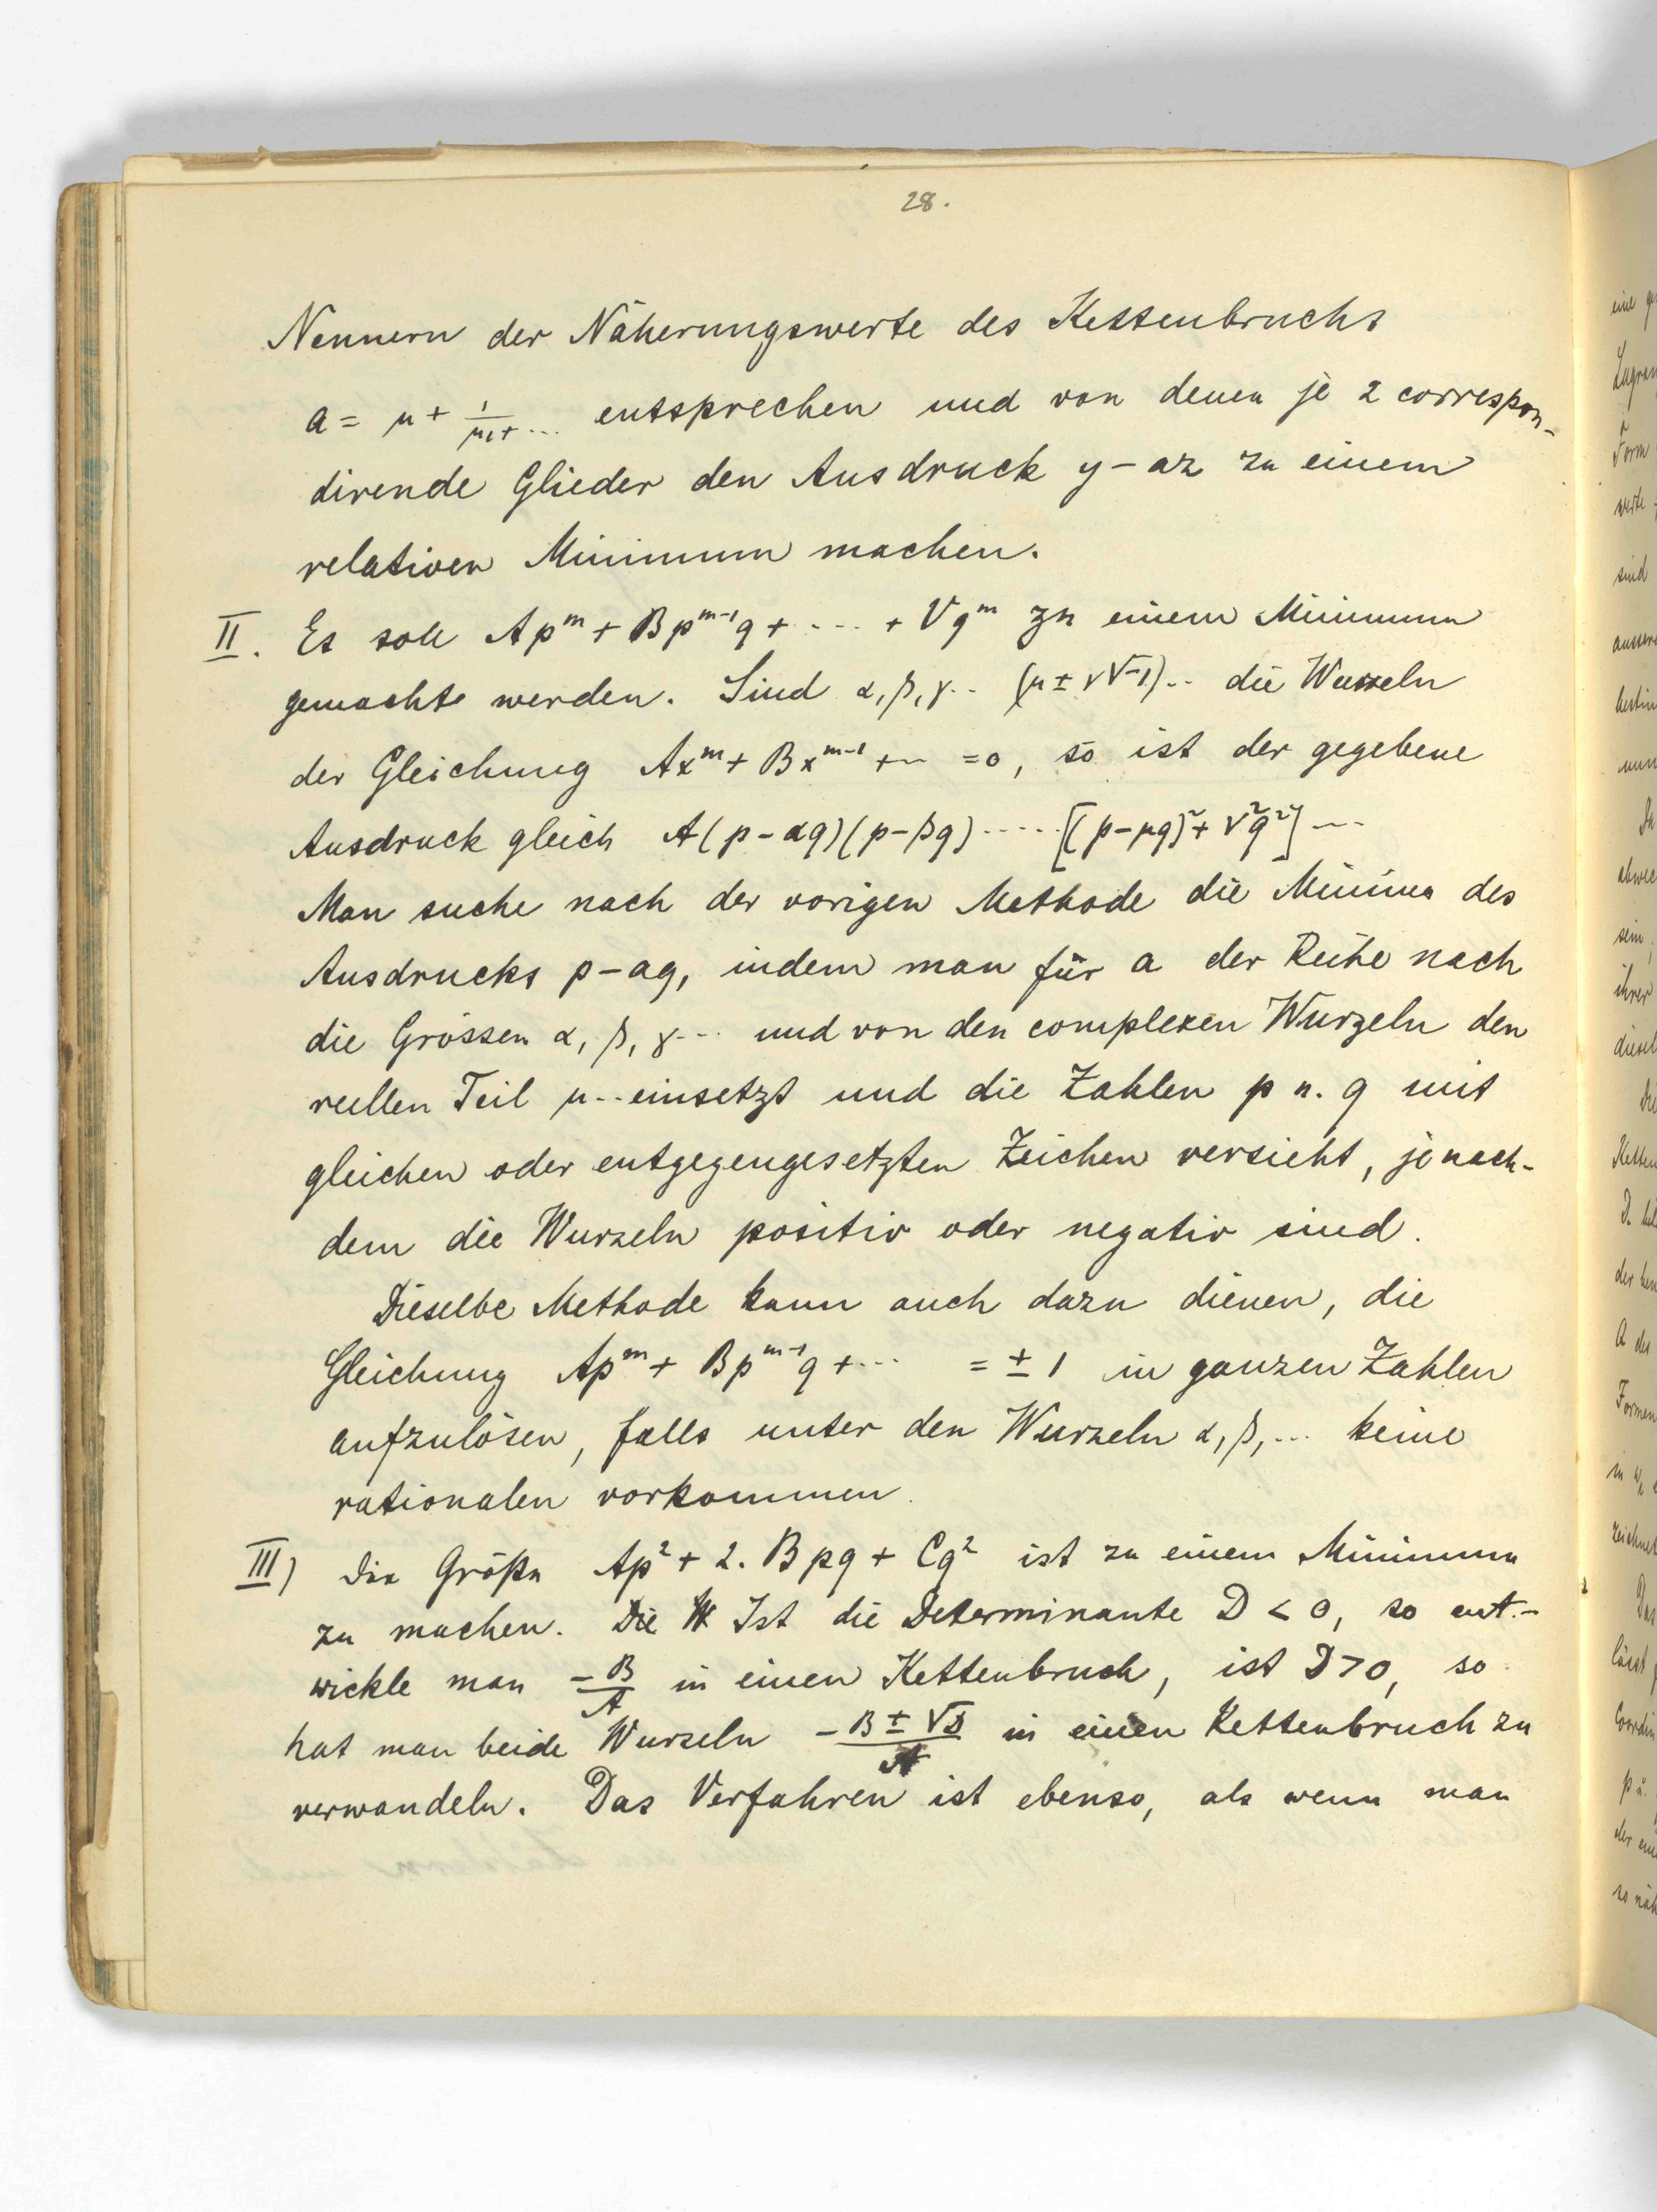 28.
Nennern der Näherungswerte des Kettenbruchs
a = μ + 1/μ₁+ ... entsprechen und von denen je 2 correspon-
dirende Glieder den Ausdruck y – az zu einem
relativen Minimum machen.
II. Es soll Apᵐ + Bpᵐ⁻¹q + ... + Vqᵐ zu einem Minimum
gemacht werden. Sind α, β, γ.. (μ ± ν√-1).. die Wurzeln
der Gleichung Axᵐ + Bxᵐ⁻¹ + ... = 0, so ist der gegebene
Ausdruck gleich A(p – αq)(p – βq) ..... [(p – μq)² + ν²q²] ...
Man suche nach der vorigen Methode die Minima des
Ausdrucks p – aq, indem man für a der Reihe nach
die Grössen α, β, γ... und von den complexen Wurzeln den
reellen Teil μ.. einsetzt und die Zahlen p u. q mit
gleichen oder entgegengesetzten Zeichen versieht, je nach-
dem die Wurzeln positiv oder negativ sind.
Dieselbe Methode kann auch dazu dienen, die
Gleichung Apᵐ + Bpᵐ⁻¹q + ... = ± 1 in ganzen Zahlen
aufzulösen, falls unter den Wurzeln α, β, ... keine
rationalen vorkommen.
III) Die Größe Ap² + 2. Bpq + Cq² ist zu einem Minimum
zu machen. Die W Ist die Determinante D < 0, so ent-
wickle man – B/A in einen Kettenbruch, ist D > 0, so
hat man beide Wurzeln –B ± √D/A in einen Kettenbruch zu
verwandeln. Das Verfahren ist ebenso, als wenn man